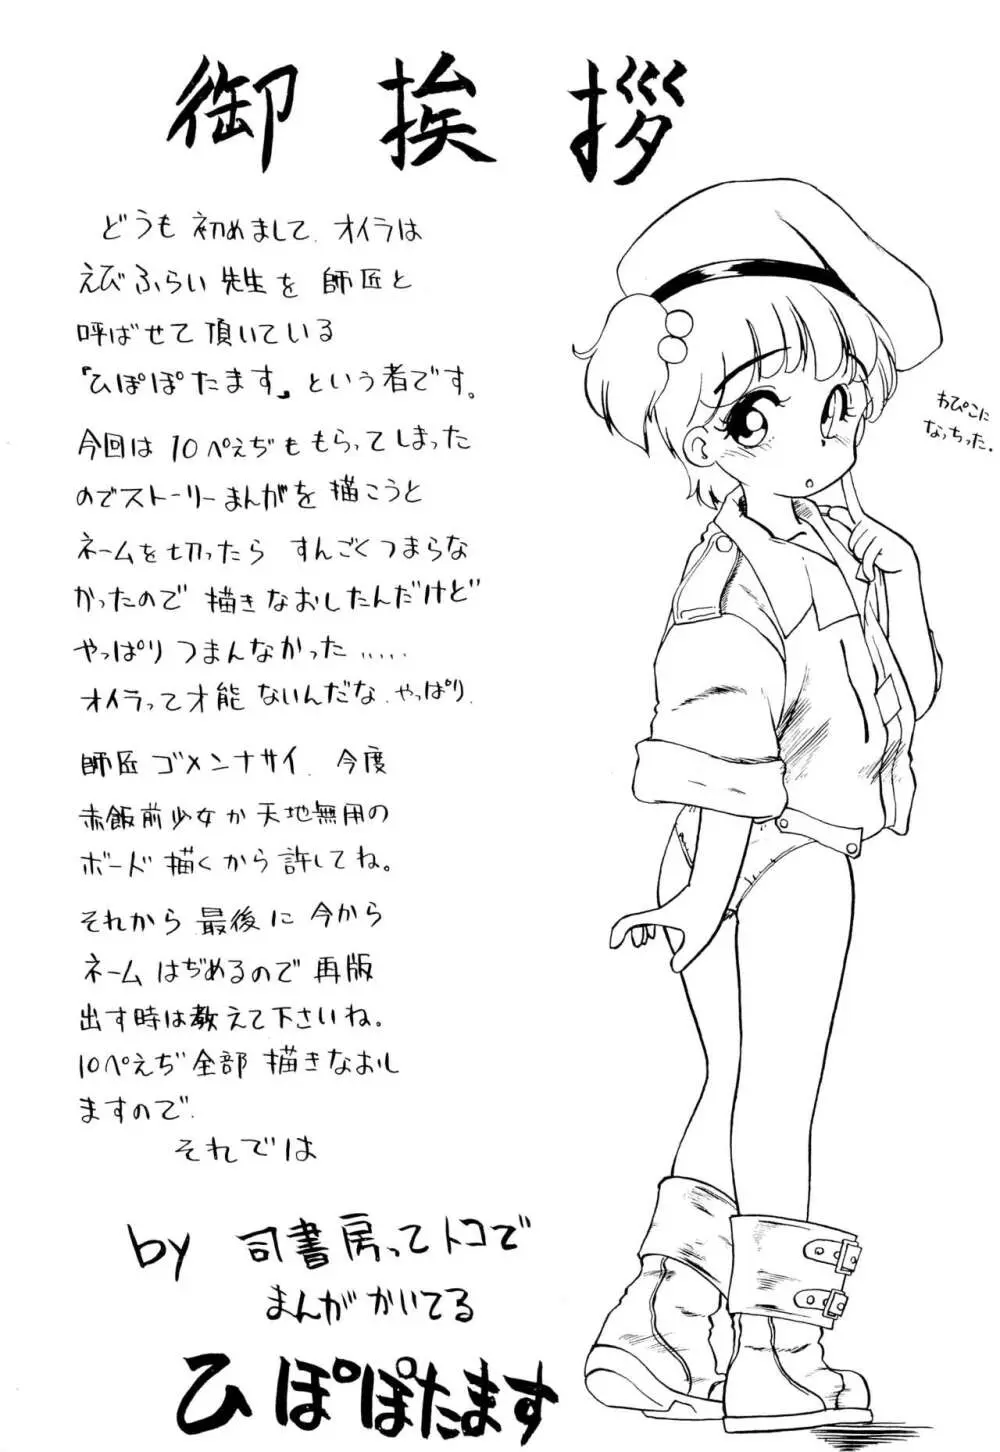 御挨拶
どうも 初めまして. オイラは
えびふらい先生を 師匠と
呼ばせて頂いている
「ひぽぽたます」という者です。
今回は 10ぺえぢももらってしまった
のでストーリーまんがを描こうと
ネームを切ったら すんごくつまらな
かったので 描きなおしたんだけど
やっぱり つまんなかった.....
オイラって才能 ないんだな.やっぱり.
師匠 ゴメンナサイ. 今度
赤飯前少女か天地無用の
ボード描くから許してね。
それから 最後に 今から
ネームはぢめるので再版
出す時は教えて下さいね。
10ぺえぢ全部 描きなおし
ますので.
それでは
by 司書房ってトコで
まんがかいてる
ひぽぽたます
わぴこに
なっちった.